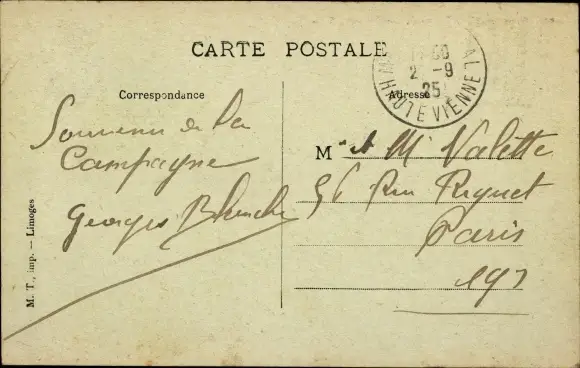 CARTE POSTALE
Correspondance
Adresse
HAUTE VIENNE
2 -9
25
Souvenir de la
Campagne
Georges Blanche
M. T., imp. — Limoges
M et M Valette
56 Rue Riquet
Paris
19